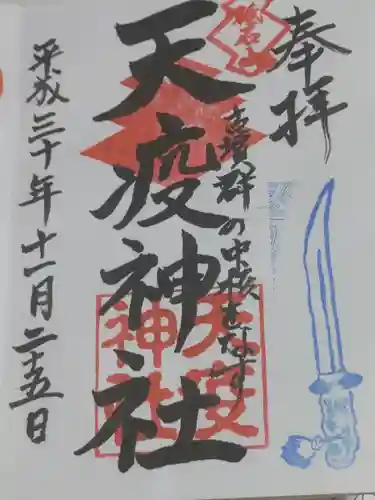 奉拝
古墳群の中核をなす
天疫神社
天疫神社
平成三十年十一月二十五日